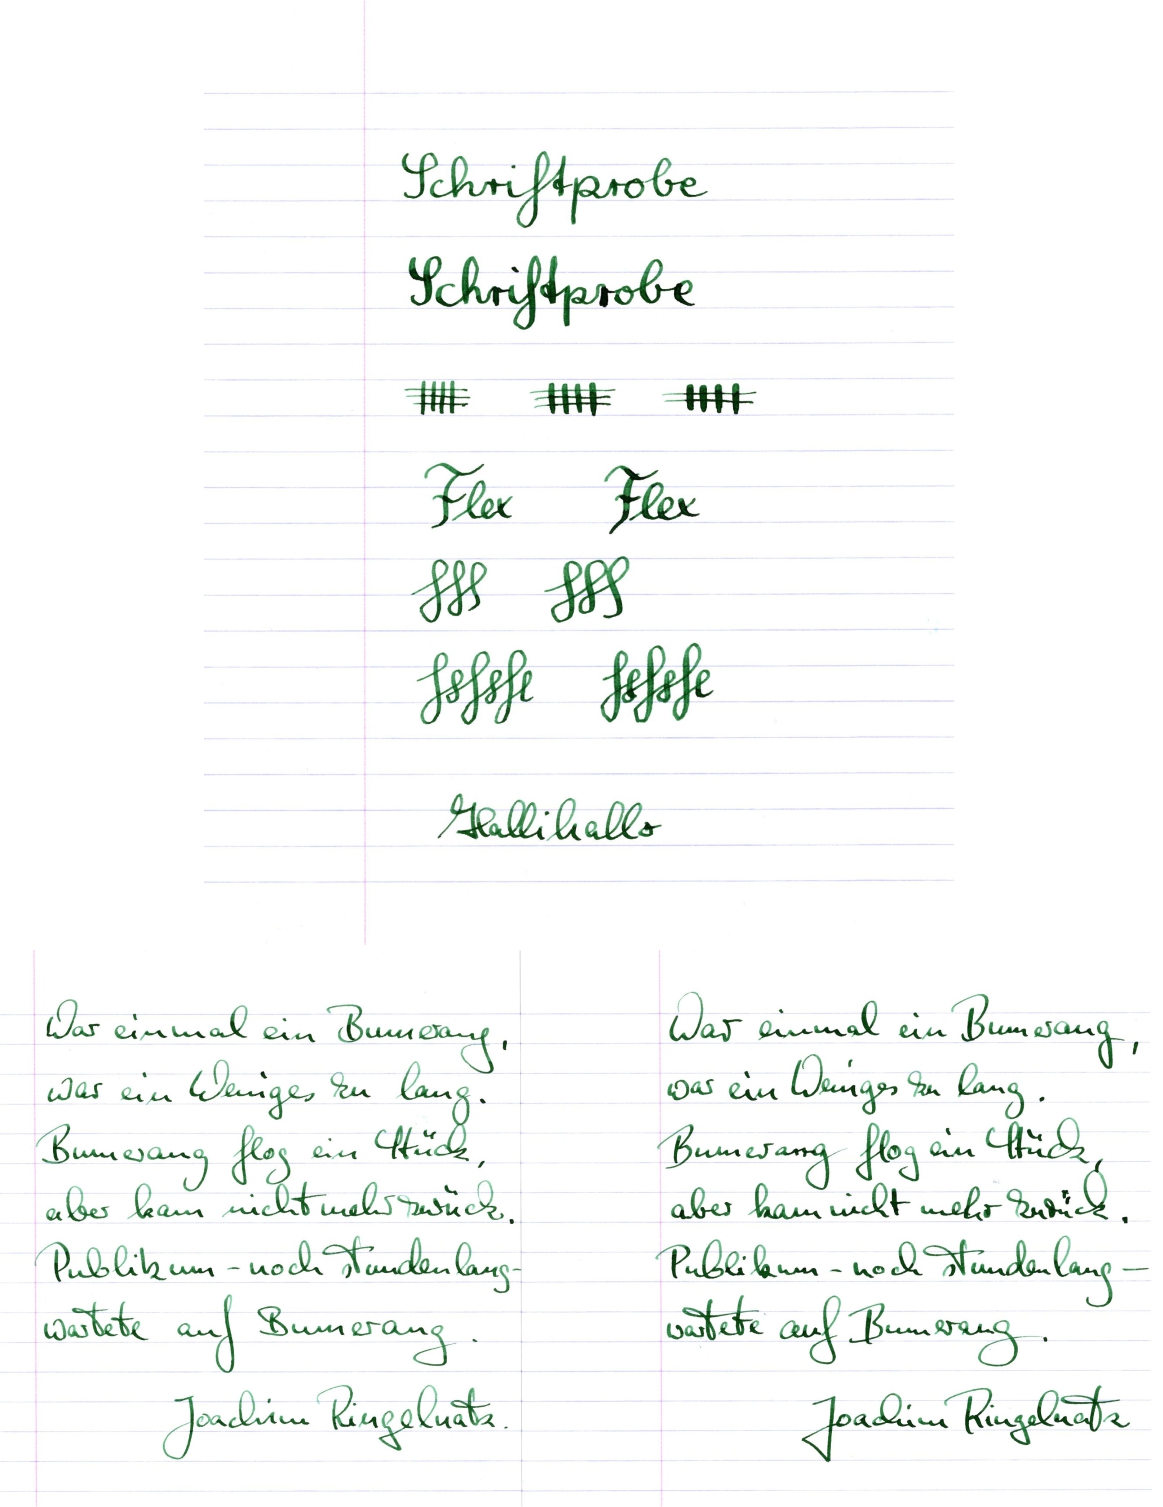 Schriftprobe
Schriftprobe
Flex Flex
Hallihallo
War einmal ein Bumerang,
war ein Weniges zu lang.
Bumerang flog ein Stück,
aber kam nicht mehr zurück.
Publikum – noch stundenlang –
wartete auf Bumerang.
Joachim Ringelnatz.
War einmal ein Bumerang,
war ein Weniges zu lang.
Bumerang flog ein Stück,
aber kam nicht mehr zurück.
Publikum – noch stundenlang –
wartete auf Bumerang.
Joachim Ringelnatz